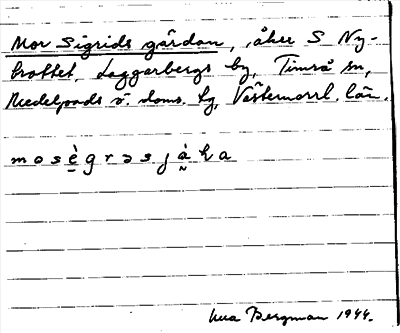 Mor Sigrids gärdan, åker S Ny-
brottet, Laggarbergs by, Timrå sn,
Medelpads ö. doms. lg, Västernorrl. län.
m o s è g r ə s j à k a
Bergman 1944.